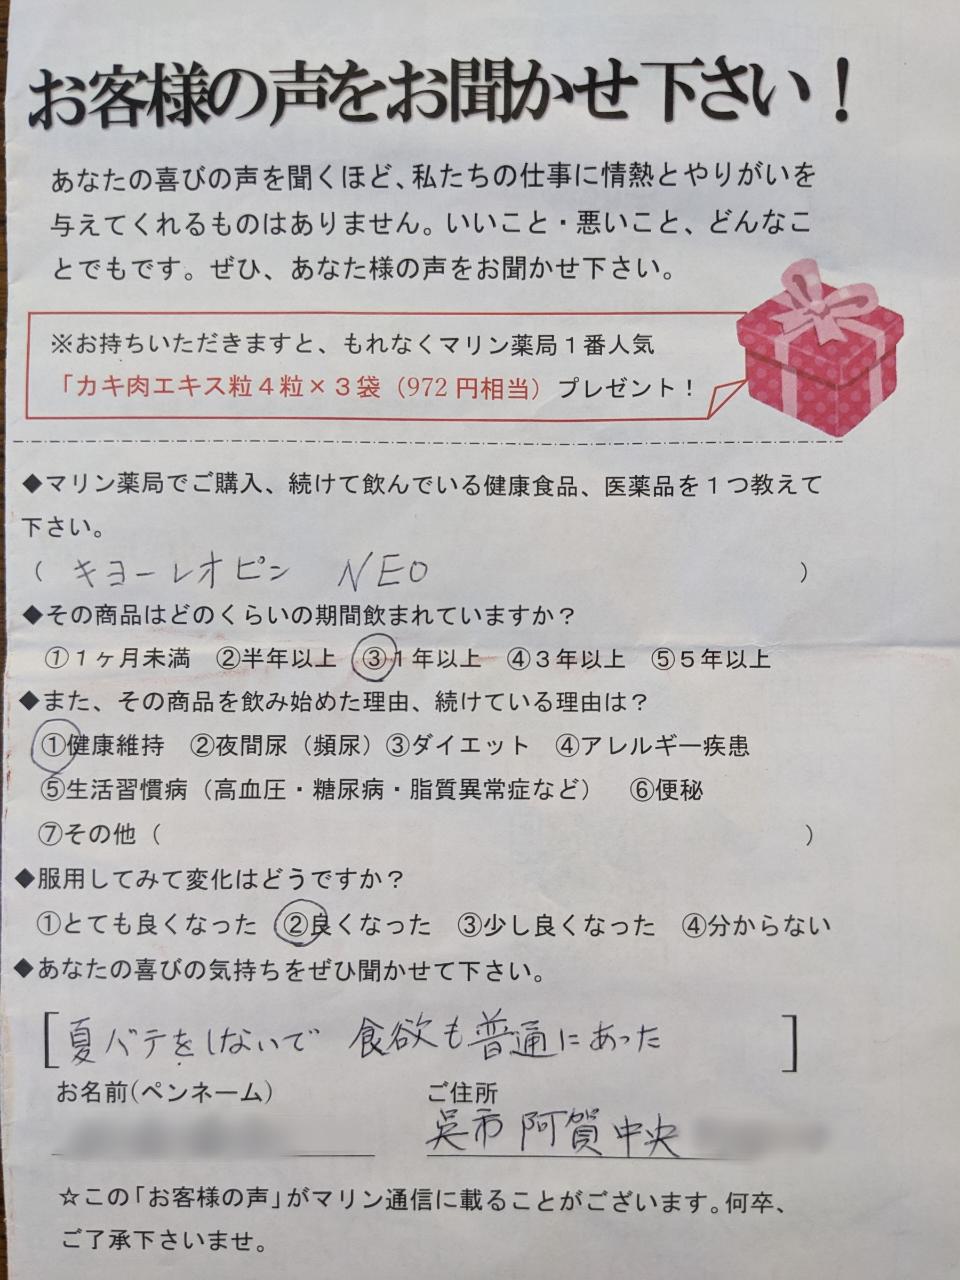 お客様の声をお聞かせ下さい！
あなたの喜びの声を聞くほど、私たちの仕事に情熱とやりがいを
与えてくれるものはありません。いいこと・悪いこと、どんなこ
とでもです。ぜひ、あなた様の声をお聞かせ下さい。
※お持ちいただきますと、もれなくマリン薬局１番人気
「カキ肉エキス粒４粒×３袋（972円相当）プレゼント！
◆マリン薬局でご購入、続けて飲んでいる健康食品、医薬品を１つ教えて
下さい。
（ キヨーレオピン NEO ）
◆その商品はどのくらいの期間飲まれていますか？
①１ヶ月未満 ②半年以上 ③１年以上 ④３年以上 ⑤５年以上
◆また、その商品を飲み始めた理由、続けている理由は？
①健康維持 ②夜間尿（頻尿）③ダイエット ④アレルギー疾患
⑤生活習慣病（高血圧・糖尿病・脂質異常症など） ⑥便秘
⑦その他（ ）
◆服用してみて変化はどうですか？
①とても良くなった ②良くなった ③少し良くなった ④分からない
◆あなたの喜びの気持ちをぜひ聞かせて下さい。
[夏バテをしないで 食欲も普通にあった ]
お名前(ペンネーム) ご住所
呉市 阿賀中央
☆この「お客様の声」がマリン通信に載ることがございます。何卒、
ご了承下さいませ。